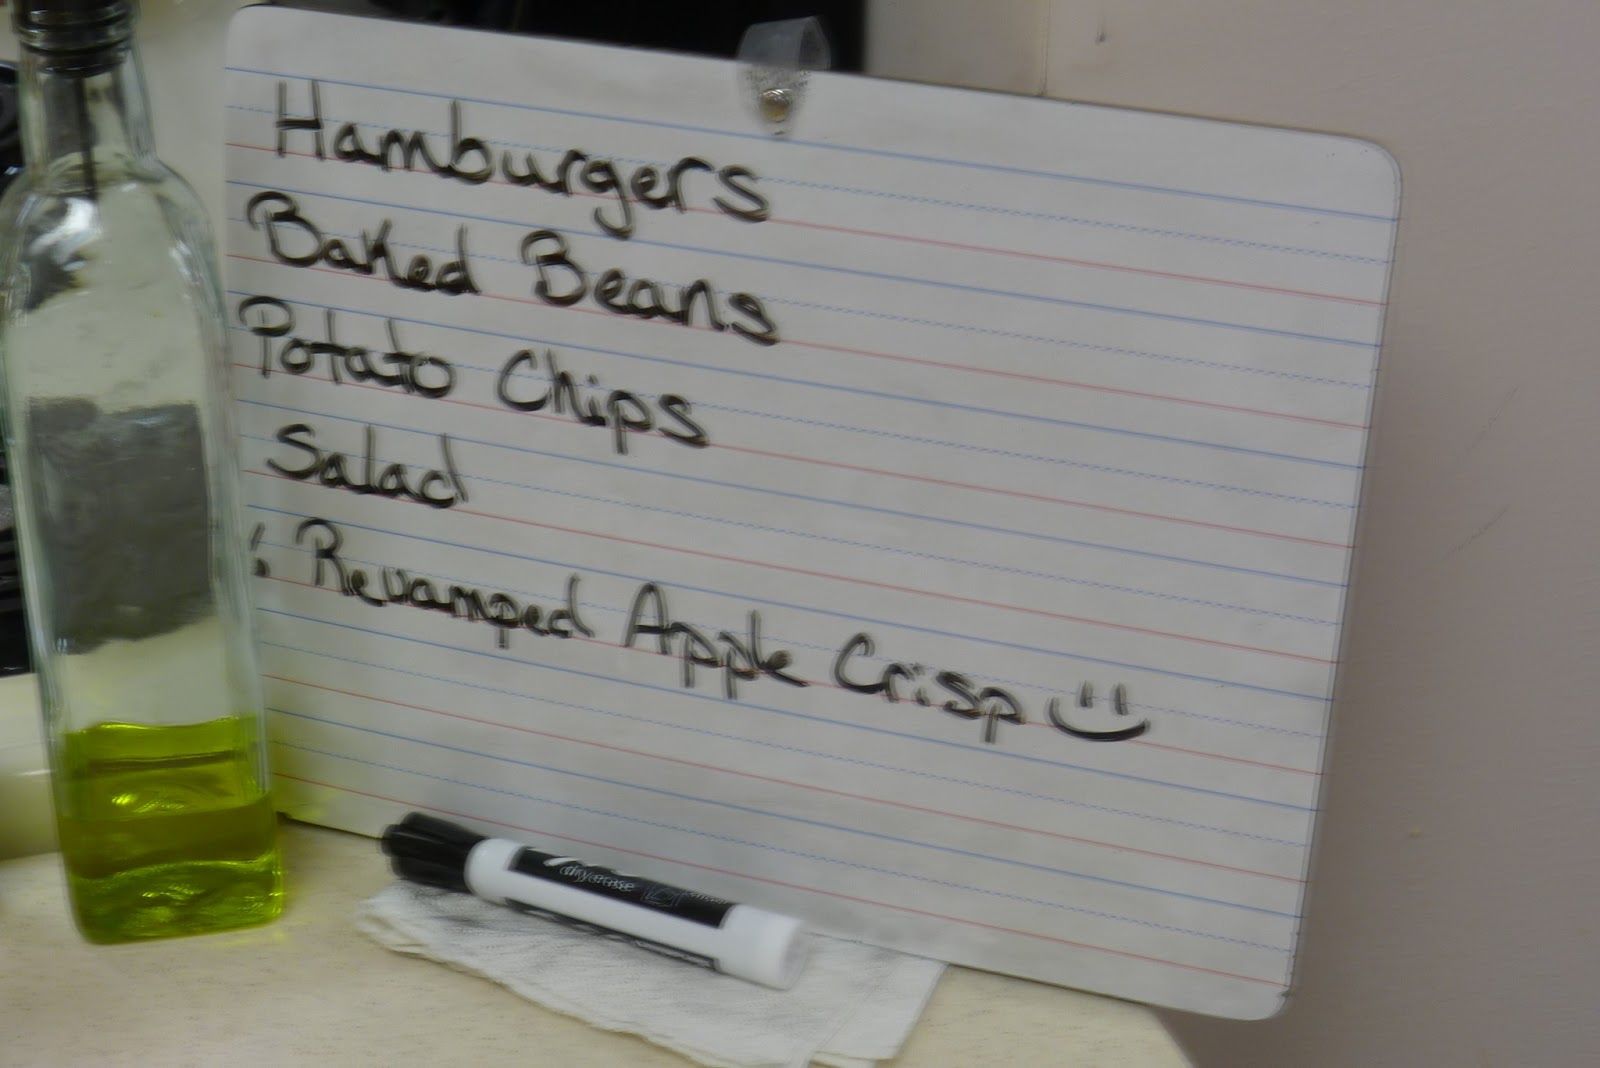 Hamburgers
Baked Beans
Potato Chips
Salad
: Revamped Apple Crisp
dry erase